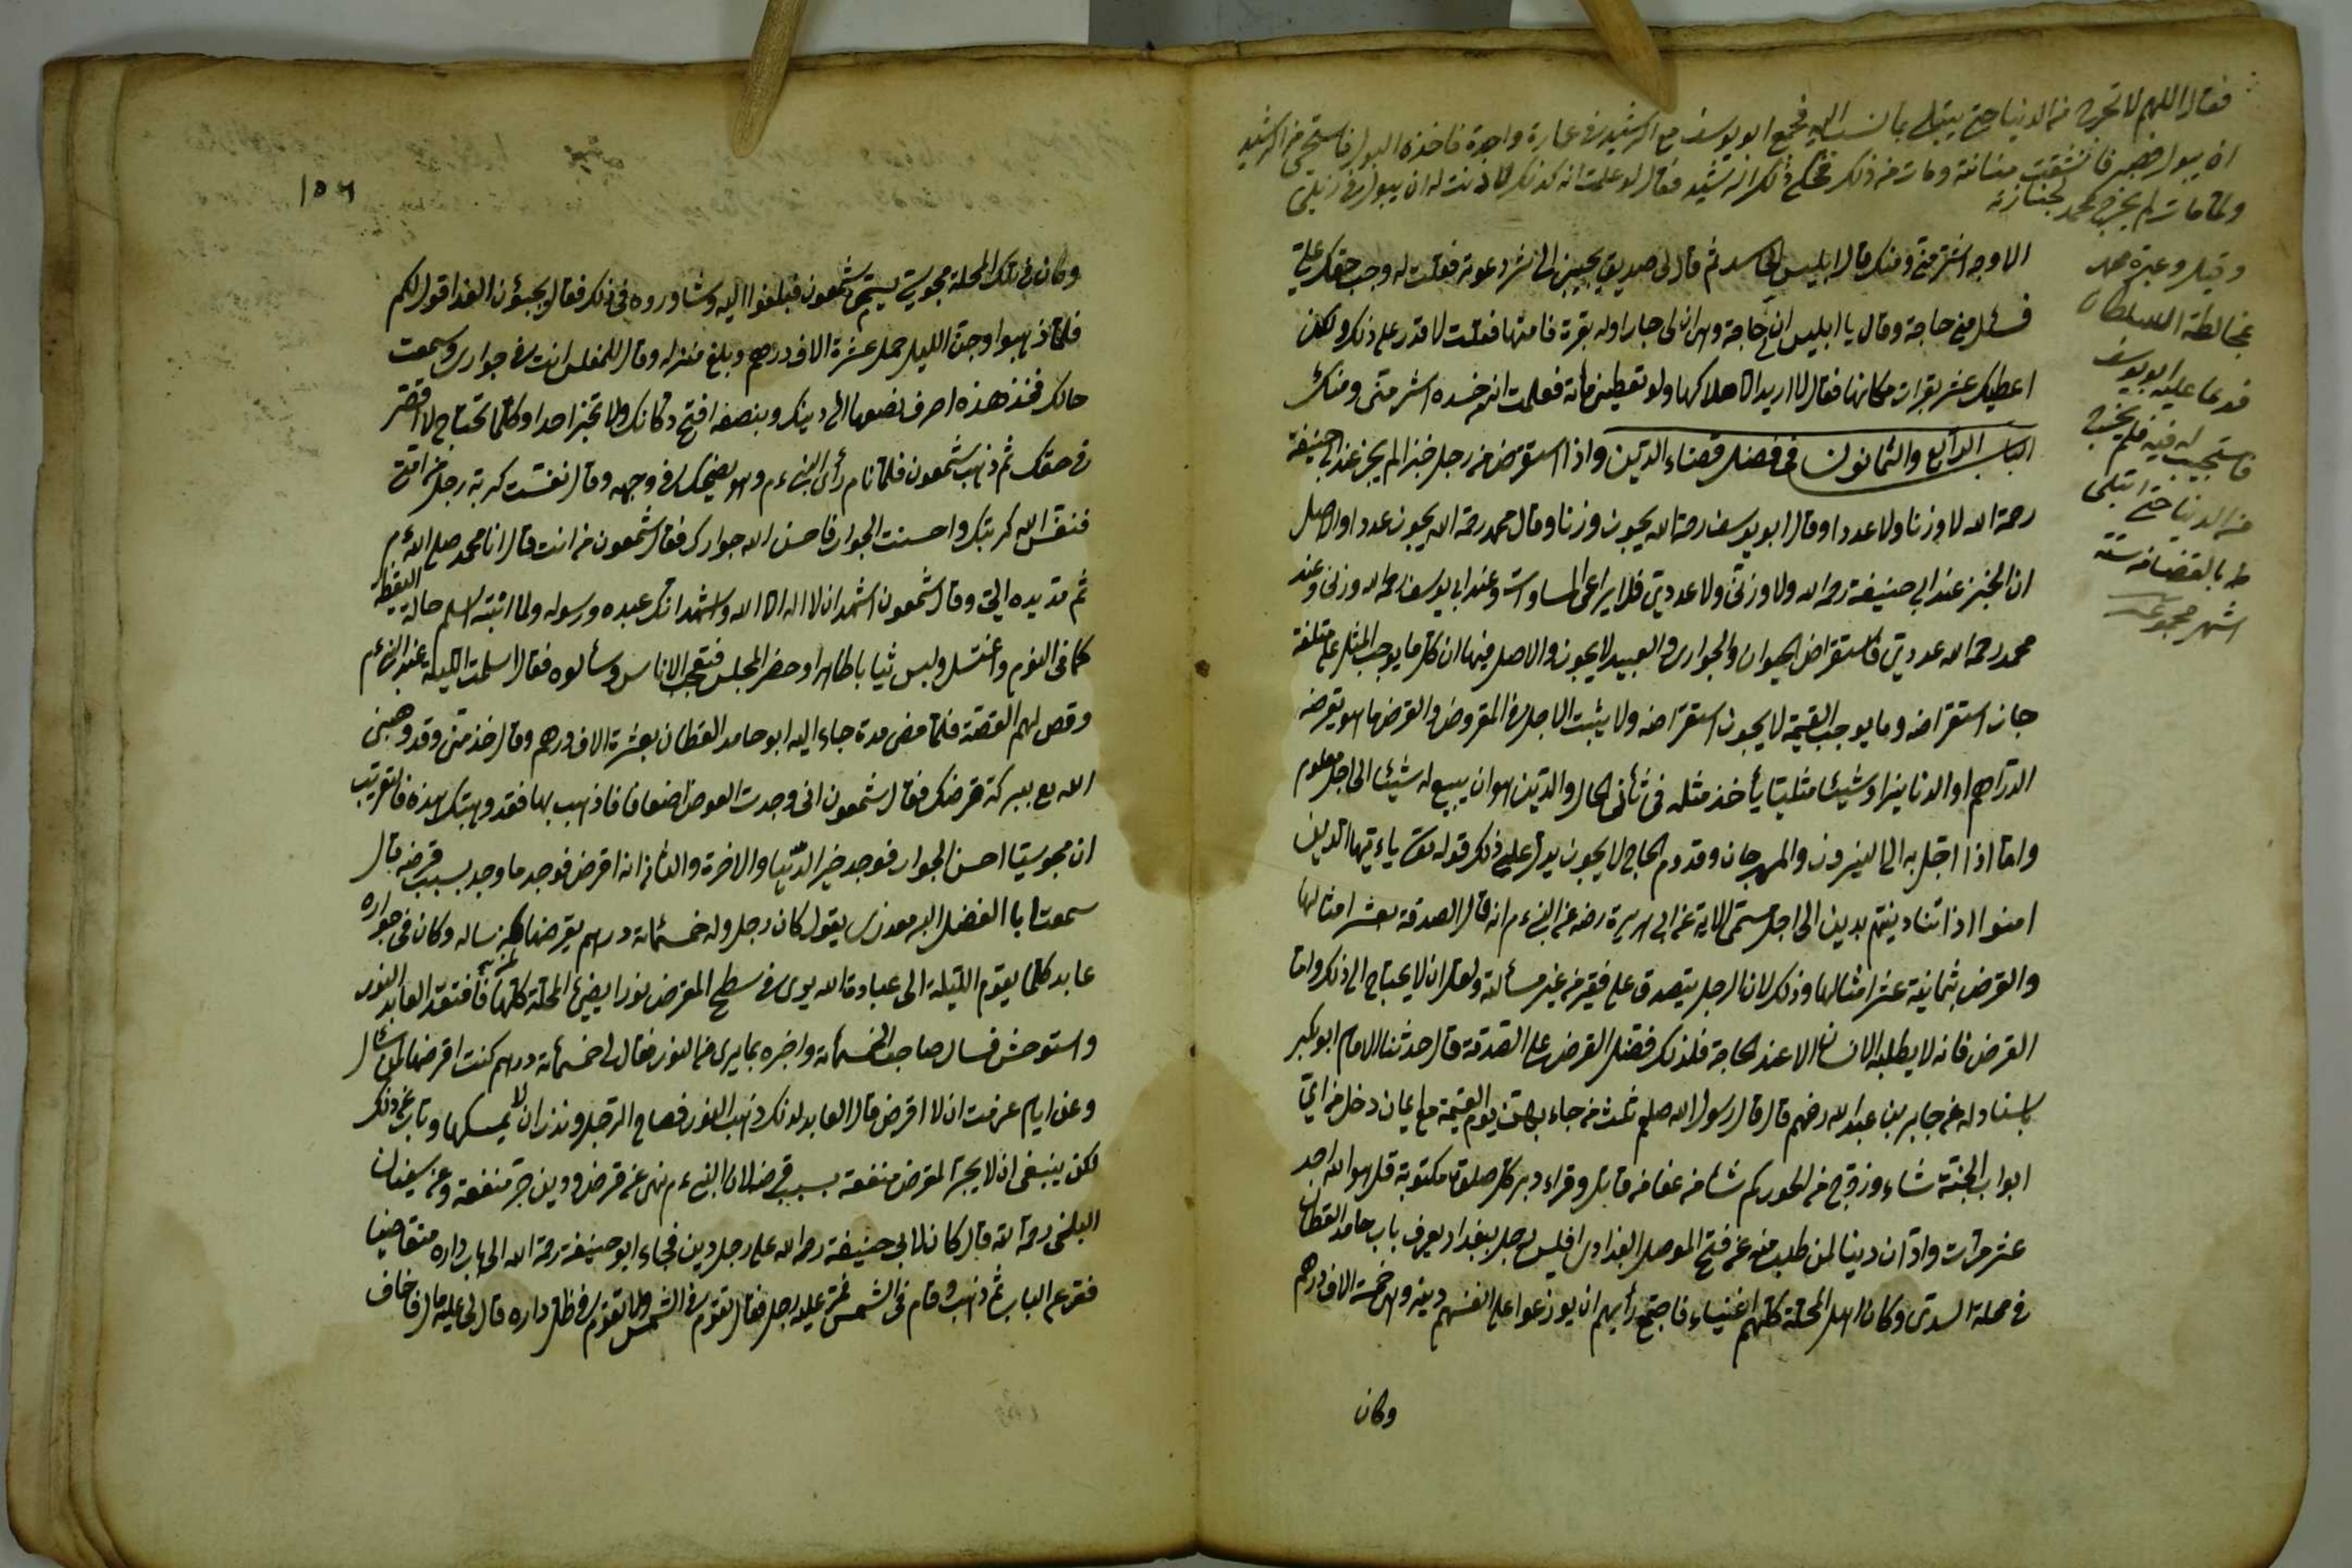 فقال اللهم لا تخرجه من الدنيا حتى يبتلى بما نسب اليه فجمع ابو يوسف مع الرشيد في عمارة واحدة فاخذه البول فاستحى من الرشيد
ان يبول فصبر فانشقت مثانته ومات من ذلك فحكى ذلك الرشيد فقال لو علمت انه كذلك لاذنت له ان يبول في ذيلي
ولما مات لم يخرج محمد لجنازته
وقيل وعيره محمد
بمخالطة السلطان
فدعا عليه ابو يوسف
فاستجيب له فيه فلم يخرج
من الدنيا حتى ابتلى
بالقضا ستة
اشهر مجموعه
الاوجه اشر مني ومنك قال ابليس الحاسد ثم قال لى صديق يجيبني الى شر دعوته فقلت له وجب حقك علي
فسئل مني حاجة وقال يا ابليس ان لي حاجة وهي ان لى جارا وله بقرة فامتها فقلت لا اقدر على ذلك ولكن
اعطيك عشر بقرات مكانها فقال لا اريد الا هلاكها ولو تعطيني مائة فعلمت انه حسده اشر مني ومنك
الباب الرابع والثمانون في فضل قضاء الدين واذا استقرض من رجل خبزا لم يجز عند ابى حنيفة
رحمه الله لا وزنا ولا عددا وقال ابو يوسف رحمه الله يجوز وزنا وقال محمد رحمه الله يجوز عددا والاصل
ان الخبز عند ابى حنيفة رحمه الله لا وزني ولا عددي فلا يراعى المساوات وعند ابى يوسف رحمه الله وزنى وعند
محمد رحمه الله عددي فاستقراض الحيوان والجوارى والعبيد لا يجوز والاصل فيها ان كل ما يوجب المثل على متلفه
جاز استقراضه وما يوجب القيمة لا يجوز استقراضه ولا يثبت الاجل في القروض والقرض ما هو يقرضه
الدراهم او الدنانير او شيئا مثليا يأخذ مثله في ثاني الحال والدين هو ان يبيع له شيئا الى اجل معلوم
واما اذا اجل به الى النيروز والمهرجان وقدوم الحاج لا يجوز يدل على ذلك قوله تع يا ايها الذين
امنوا اذا تداينتم بدين الى اجل مسمى الاية عن ابى هريرة رضه عن النبي ءم انه قال الصدقة بعشر امثالها
والقرض بثمانية عشر امثالها وذلك لان الرجل يتصدق على فقير من غير مسألته ولعله ان لا يحتاج الى ذلك واما
القرض فانه لا يطلبه الانسان الا عند الحاجة فلذلك فضل القرض على الصدقة قال حدثنا الامام ابو بكر
باسناد له عن جابر بن عبد الله رضهم قال قال رسول الله صلعم ثلث من جاء بهن يوم القيمة مع ايمان دخل من اي
ابواب الجنة شاء وزوج من الحور كم شاء من عفا من قاتل وقراء دبر كل صلوة مكتوبة قل هو الله احد
عشر مرات وادآن دينا لمن طلب منه عن فتح الموصلى البغدادى افليس رجل ببغداد يعرف باب حامد القطان
في محلة السدى وكان اهل المحلة كلهم اغنياء فاجتمع رأيهم ان يوزعوا على انفسهم دينه وهي خمسة الاف درهم
وكان
١٥٦
وكان في تلك المحلة مجوسي يسمى شمعون فبلغوا اليه وشاوروه في ذلك فقال يجيؤن الغد اقول لكم
فلما ذهبوا وجن الليل حمل عشرة الاف درهم وبلغ منزله وقال للمفلس انت في جوارى وسمعت
حالك فخذ هذه اصرف نصفها الى دينك وبنصفه افتح دكانك ولا تخبر احدا وكلما تحتاج لا اقصر
في حقك ثم ذهب شمعون فلما نام رأى النبي ءم وهو يضحك في وجهه وقال نفست كربة رجل من امتي
فنفس الله كربتك واحسنت الجوار فاحسن الله جوارك فقال شمعون من انت قال انا محمد صلى الله ءم
ثم مد يده الي وقال شمعون اشهد ان لا اله الا الله واشهد انك عبده ورسوله ولما انتبه اسلم حالة اليقظة
كما في النوم واغتسل ولبس ثيابا طاهرا وحضر المجلس فتعجب الناس وسألوه فقال اسلمت الليلة عند النبي ءم
وقص لهم القصة فلما مضى مدة جاء اليه ابو حامد القطان بعشرة الاف درهم وقال خذ مني وقد وهبني
الله تع ببركة قرضك فقال شمعون انى وجدت العوض اضعافا فاذهب بها فقد وهبتك هذه فالغريب
ان مجوسيا احسن الجوار فوجد خير الدنيا والاخرة والثاني انه اقرض فوجد ما وجد بسبب قرضه قال
سمعت ابا الفضل البرمعدرى يقول كان رجل وله خمسمائة درهم يقرضها لمن ساله وكان في جواره
عابد كلما يقوم الليلة الى عبادة الله يرى في سطح المقرض نورا يضيئ المحلة كلها فافتقد العابد النور
واستوحش فسال صاحب الخمسمائة واخبره بما يرى من النور فقال لى خمسمائة درهم كنت اقرضها لمن سأل
وعن ايام عزمت ان لا اقرض قال العابد لذلك ذهب النور فصاح الرجل ونذر ان لا يمسكها وتاب عن ذلك
لكن ينبغى ان لا يجر المقرض منفعة بسبب قرضه لان النبي ءم نهى عن قرض ودين جر منفعة وعن سفيان
البلخى رحمه الله قال كان لابى حنيفة رحمه الله على رجل دين فجاء ابو حنيفة رحمه الله الى باب داره متقاضيا
فقرع الباب ثم ذهب وقام في الشمس فمر عليه رجل فقال تقوم في الشمس ولا تقوم في ظل داره قال لى عليه مال فاخاف